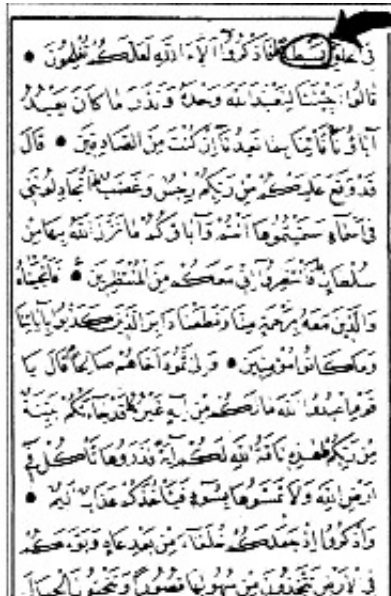 فى الخلق بسطة فاذكروا آلاء الله لعلكم تفلحون ●
قالوا اجئتنا لنعبد الله وحده ونذر ما كان يعبد
آباؤنا فأتنا بما تعدنا ان كنت من الصادقين ● قال
قد وقع عليكم من ربكم رجس وغضب اتجادلونني
فى اسماء سميتموها انتم وآباؤكم ما نزل الله بها من
سلطان فانتظروا انى معكم من المنتظرين ● فانجيناه
والذين معه برحمة منا وقطعنا دابر الذين كذبوا بآياتنا
وما كانوا مؤمنين ● والى ثمود اخاهم صالحا قال يا
قوم اعبدوا الله ما لكم من اله غيره قد جاءتكم بينة
من ربكم هذه ناقة الله لكم آية فذروها تأكل فى
ارض الله ولا تمسوها بسوء فيأخذكم عذاب اليم ●
واذكروا اذ جعلكم خلفاء من بعد عاد وبوءكم
فى الارض تتخذون من سهولها قصورا وتنحتون الجبال